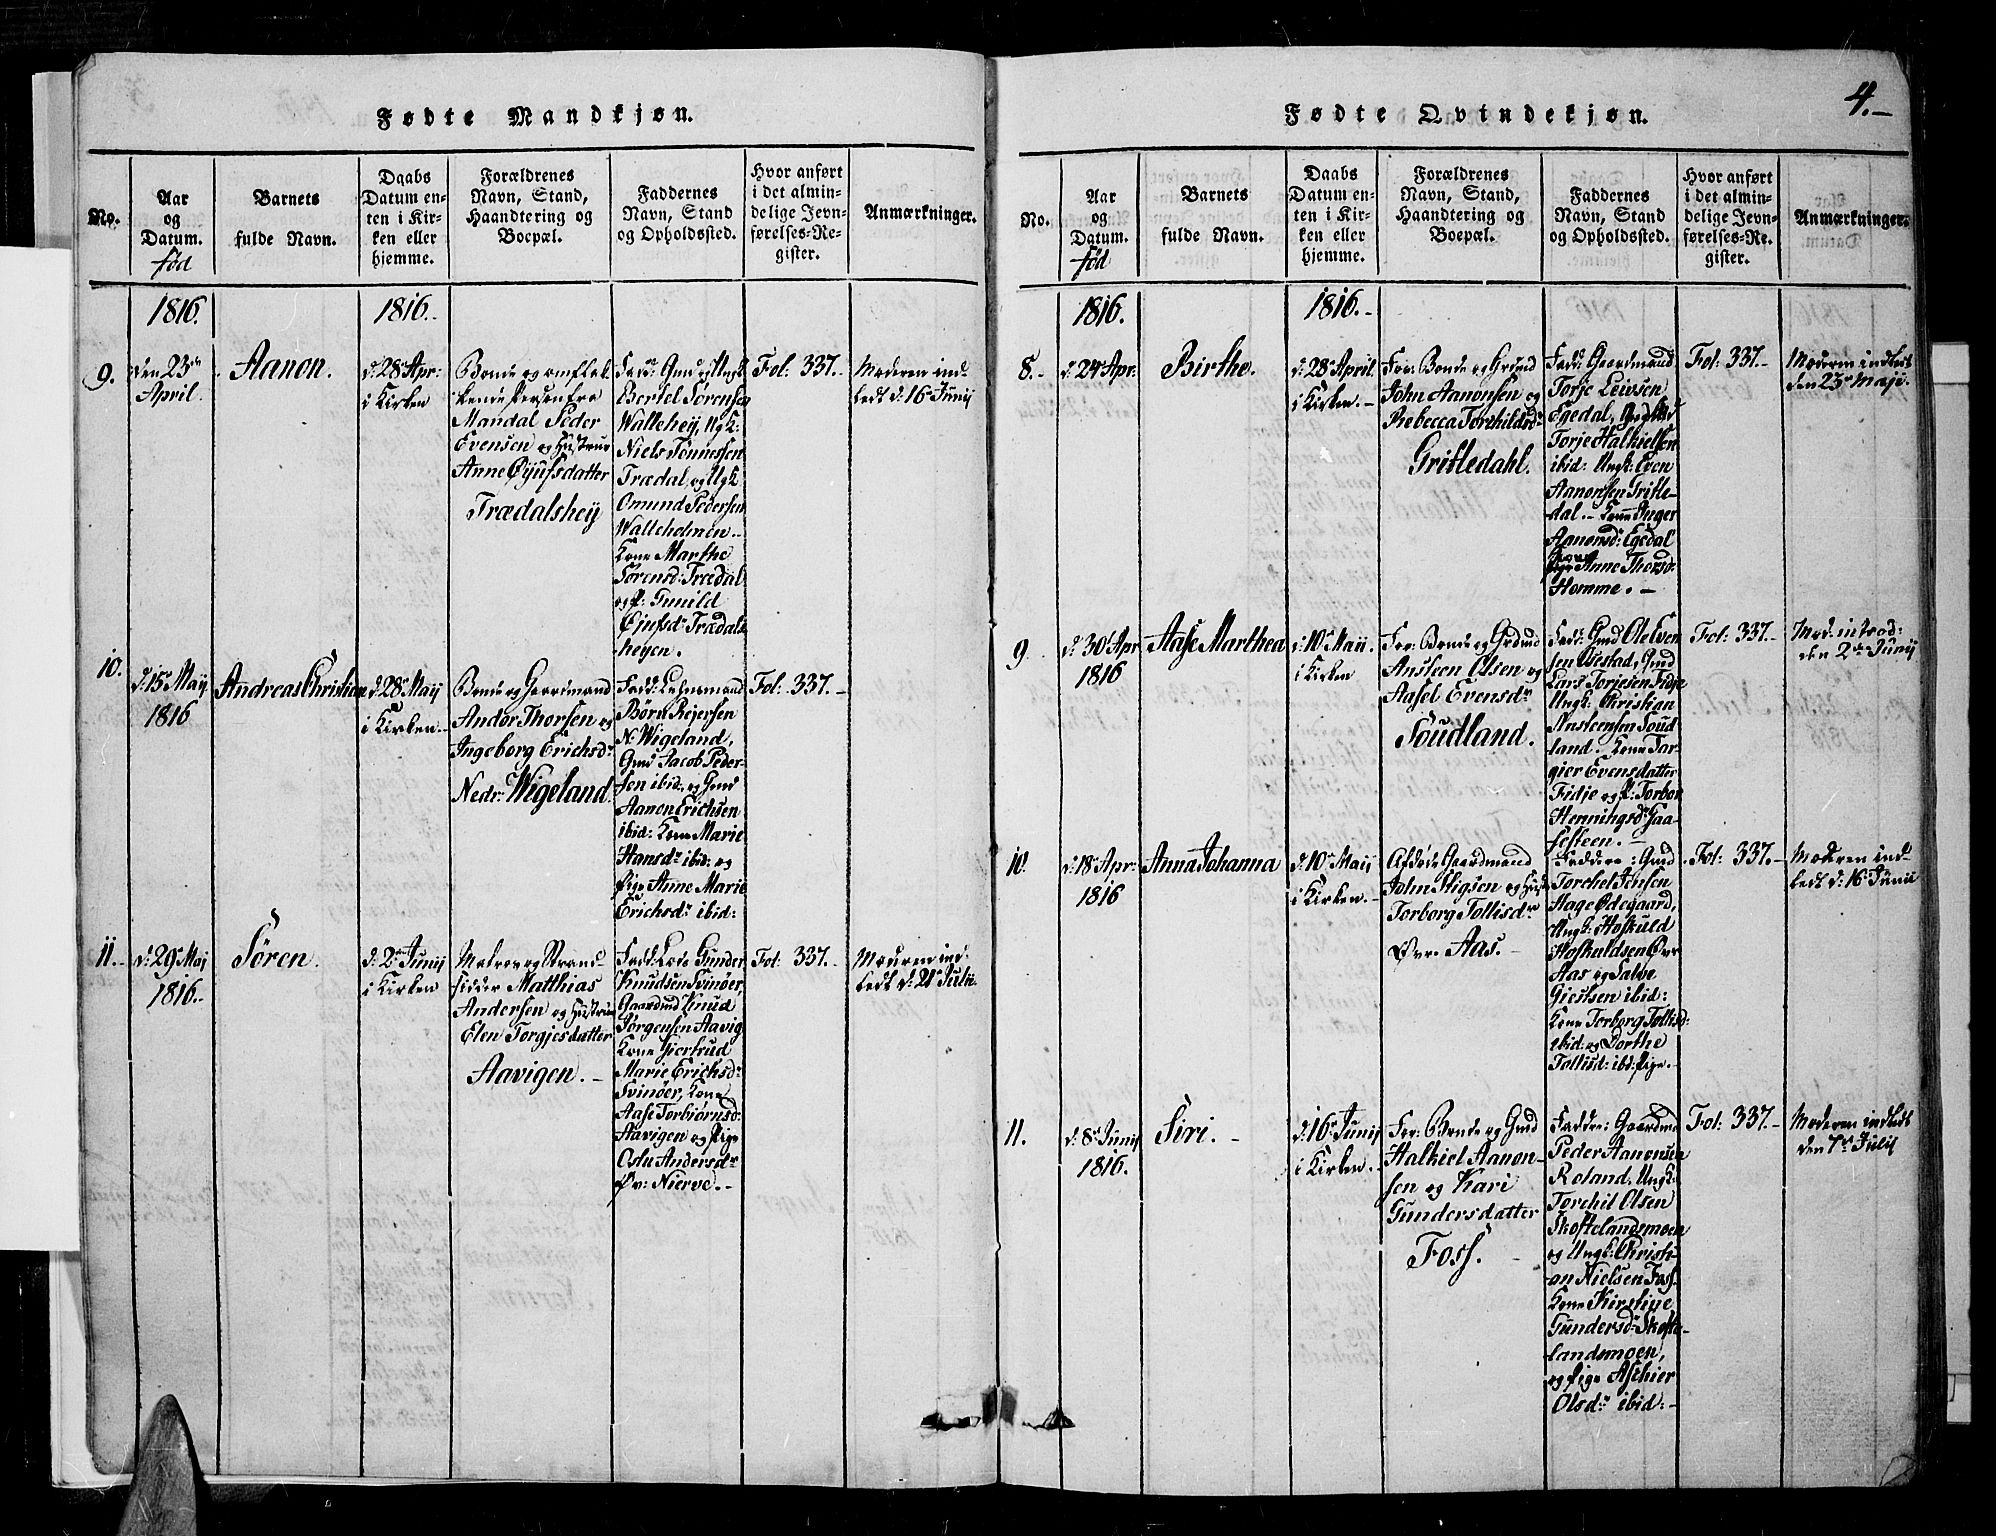 Fødte Mandkjøn.
No.
Aar
og
Datum.
fød
Barnets
fulde Navn.
Daabs
Datum en-
ten i Kir-
ken eller
hjemme.
Forældrenes
Navn, Stand,
Haandtering og
Boepæl.
Faddernes
Navn, Stand
og Opholdssted.
Hvor anført
i det almin-
delige Jevn-
førelses-Re-
gister.
Anmærkninger.
1816.
1816.
9.
den 23de
April.
Aanon.
d: 28 Apr:
i Kirken
Bonde og
Mandal Peder
Evensen og Hustrue
Anne Øyufsdatter
Trædalshey
Fadd: Gmd og Ungk
Bertel Sørensen
Wallehey, Ugk:
Niels Tønnessen
Trædal, og Ugk
Omund Pedersen
Walleholmen..
Kone Marthe
Sørensd: Trædal
og P: Gunild
Øjufsdr Trædals
heyen.
Fol: 337.-
Moderen ind
ledt d: 16 Junij
10.
d: 15 Maij
1816
Andreas Christian
d: 28 Maij
i Kirken..
Bonde og Gaardmand
Andor Thorsen og
Ingeborg Erichsdr
Nedr: Wigeland.
Fadd: Lehnsmand
Børu Rejersen
N: Wigeland,
Gmd Jacob Peder-
sen ibid: og Gmd
Aanon Erichsen
ibid: Kone Marie
Hansdr ibid: og
Pige Anne Marie
Erichsdr ibid:
Fol: 337.-
11.-
d: 29 Maj
1816.-
Søren.
d: 2den Junij
i Kirken
Matros og Strand
sidder Matthias
Andersen og Hustrue
Elen Torgjesdatter
Aavigen.-
Fadd: Lods Gunder
Knudsen Svinøer,
Gaardmd Knud
Jørgensen Aavig
Kone Giertrud
Marie Erichsdr
Svinøer, Kone
Aase Torbiørnsd:
Aavigen og Pige
Oslu Andersdr
Øv: Nierve.-
Fol: 337.-
Moderen ind:
ledt d: 21 Julii.
Fødte Qvindekjøn.
4.-
No.
Aar
og
Datum.
fød
Barnets
fulde Navn.
Daabs
Datum en-
ten i Kir-
ken eller
hjemme.
Forældrenes
Navn, Stand,
Haandtering og
Boepæl.
Faddernes
Navn, Stand
og Opholdssted.
Hvor anført
i det almin-
delige Jevn-
førelses-Re-
gister.
Anmærkninger.
1816.
1816.-
8.-
d: 24 Apr:
Birthe.
d: 28 April
i Kirken.-
For: Bonde og Grdmd
John Aanonsen og
Rebecca Torchildsdr
Grifledahl.
Fadd: Gaardmand
Torje Leivsen
Egedal,
Torje Halkielsen
ibid: Ungk: Even
Aanonsen Grifle-
dal.- Kone Inger
Aanonsd: Egedal
Anne Thorsd:
Homme.-
Fol: 337.-
Moderen indledt
den 23 Maji.
9.
d: 30 Apr
1816
Aase Marthea
d: 10 Maii.
i Kirken
For: Bonde og Grdmd
Ansteen Olsen og
Aasel Evensdr
Soudland.
Fadd: Gmd Ole Even
sen Ousestad, Gmd
Lars Torjesen Fidje
Ungk: Christian
Ansteensen Soud
land. Kone Tar-
gier Evensdatter
Fidje og P: Torbor
Henningsdr Gaa-
sesteen.-
Fol: 337.-
Mod: introd:
den 2den Junij
10.
d: 18 Apr:
1816
Anna Johanna
d: 10 Maij
i Kirken.-
Afdøde Gaardmand
John Stigsen og Hust
Torborg Tollisdr
Øvr: Aas.-
Faddere: Gmd
Torchel Jensen
Hage Ødegaard,
Ungk: Hoskuld
Hoskuldsen Øvr
Aas og Salve
Gieulsen ibid:
Kone Torborg Tollisd:
ibid: og Dorthe
Tollisd: ibd: Pige.-
Fol: 337.-
Moderen ind-
ledt d: 16 Junii
11.
d: 8 Junij
1816.
Siri.-
d: 16 Junij
i Kirken.-
For: Bonde og Gmd
Halkiel Aanon-
sen og Kari
Gundersdatter
Foss.
Faddre: Gaardmd
Peder Aanonsen
Roland, Ungk:
Torchil Olsen
Skoftelandsmoen
og Ungk: Christi-
an Nielsen Foss.
Kone Kirstine
Gundersd: Skofte-
landsmoen,
og Pige Aschier
Olsdr ibid:-
Fol: 337.-
Moderen indledt
den 7 Julij